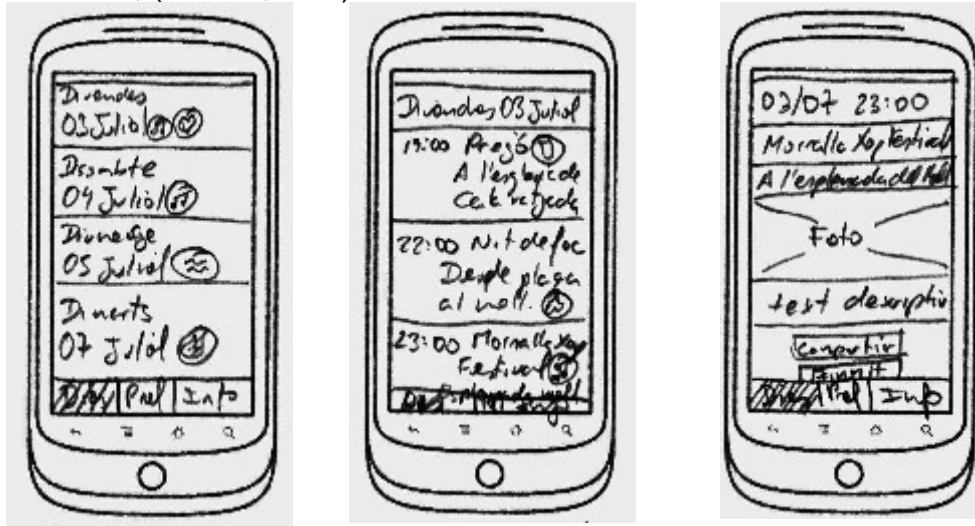 Divendres
03 Juliol
Dissabte
04 Juliol
Diumenge
05 Juliol
Dimarts
07 Juliol
Pref Info
Divendres 03 Juliol
19:00 Pregó
A l'esglaó de
22:00 Nit de foc
Desde plaça
al moll.
23:00 Morralla Xop
Festival
Info
03/07 23:00
Morralla Xop Festival
A l'esplanada del Moll
Foto
text descriptiu
Compartir
Pref Info